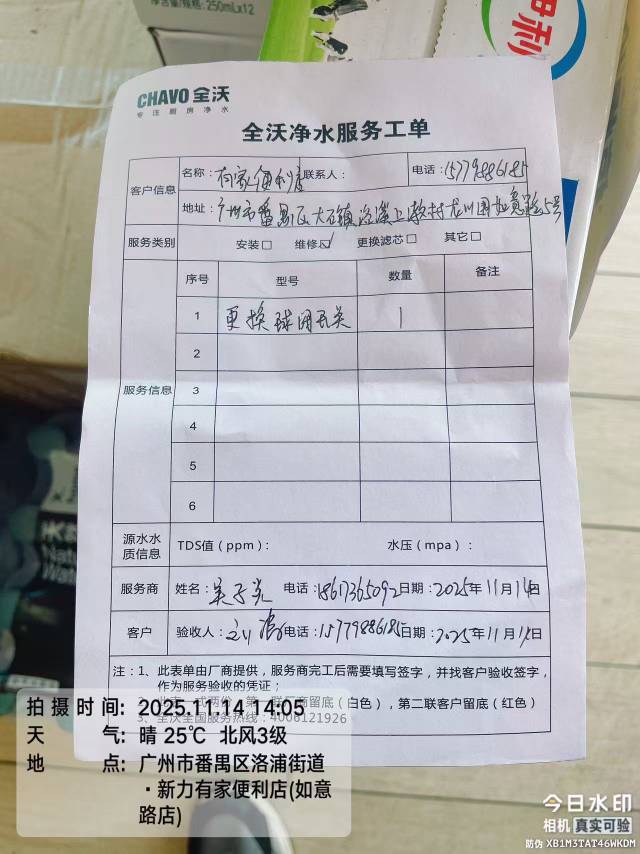 净含量/规格: 250mL×12
伊利
CHAVO 全沃
专注厨房净水
全沃净水服务工单
客户信息
名称: 有家便利店 联系人: 电话: 15779886185
地址: 广州市番禺区大石镇洛溪上漖村龙川围如意路5号
服务类别 安装□ 维修☑ 更换滤芯□ 其它□
服务信息
序号 型号 数量 备注
1 更换球阀开关 1
2
3
4
5
6
源水水质信息 TDS值(ppm): 水压(mpa):
服务商 姓名: 电话: 18617365092 日期: 2025年11月14日
客户 验收人: 电话: 15779886185 日期: 2025年11月14日
注: 1、此表单由厂商提供,服务商完工后需要填写签字,并找客户验收签字,
作为服务验收的凭证;
2、此表一式两份,第一联厂商留底(白色),第二联客户留底(红色)
3、全沃全国服务热线: 4006121926
拍摄时间: 2025.11.14 14:05
天气: 晴 25℃ 北风3级
地点: 广州市番禺区洛浦街道
·新力有家便利店(如意
路店)
今日水印
相机 真实可验
防伪 XB1M3TAT46WKDM